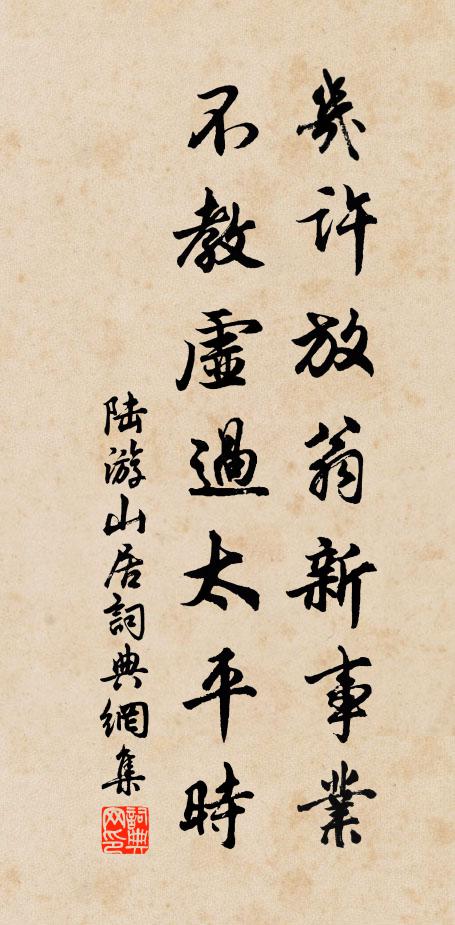 幾許放翁新事業
不教虛過太平時
陸游山居詞典網集
詞典网印